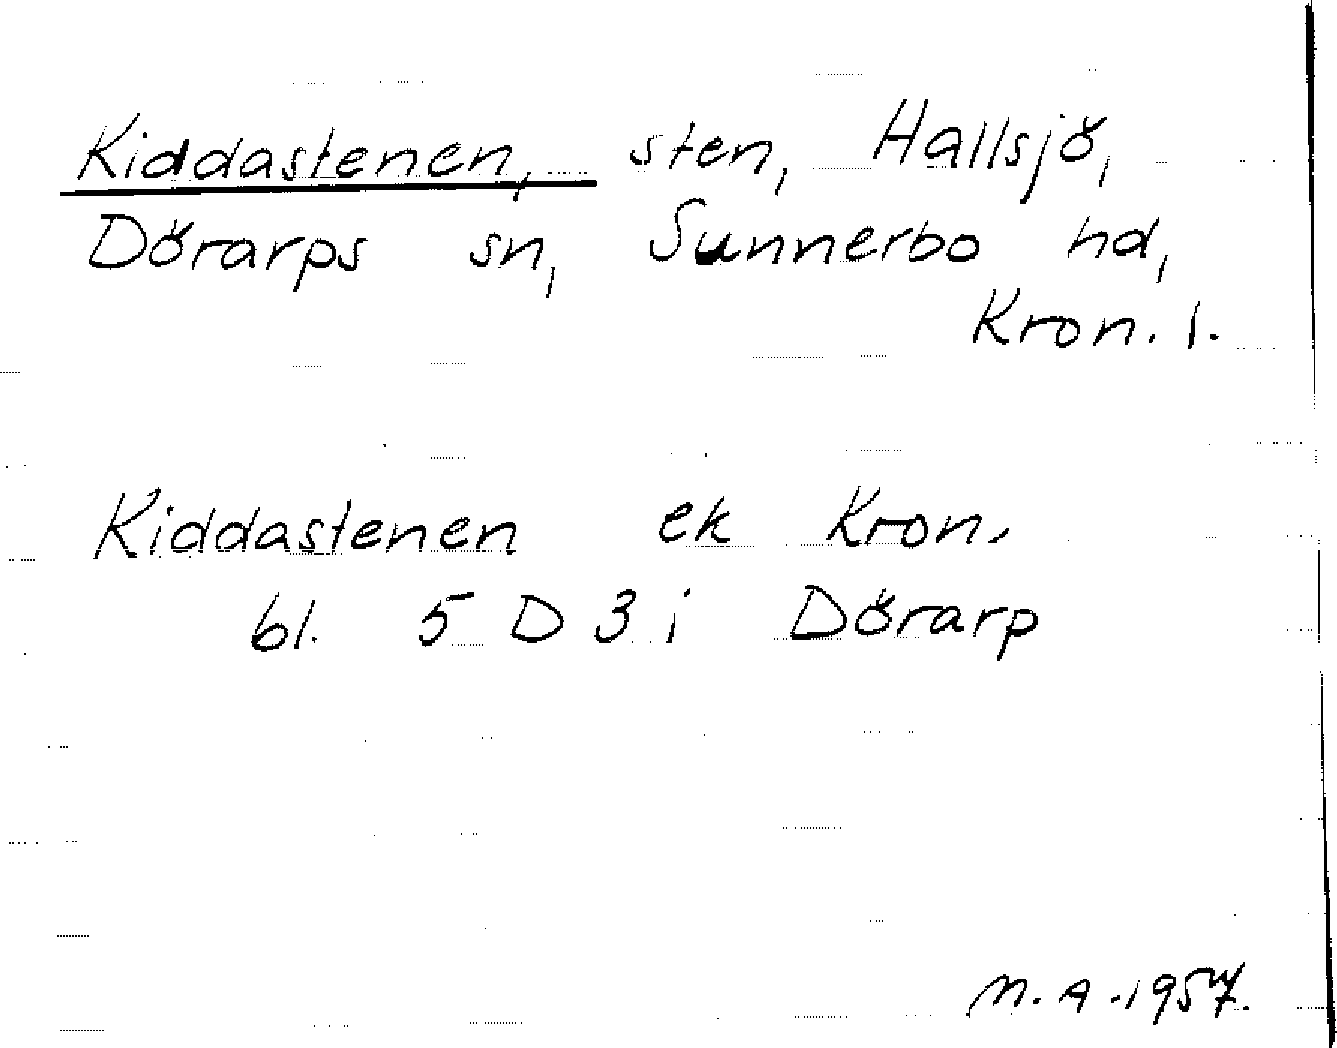 Kiddastenen, sten, Hallsjö,
Dörarps sn, Sunnerbo hd,
Kron. l.
Kiddastenen ek Kron.
bl. 5 D 3 i Dörarp
N. A. 1957.